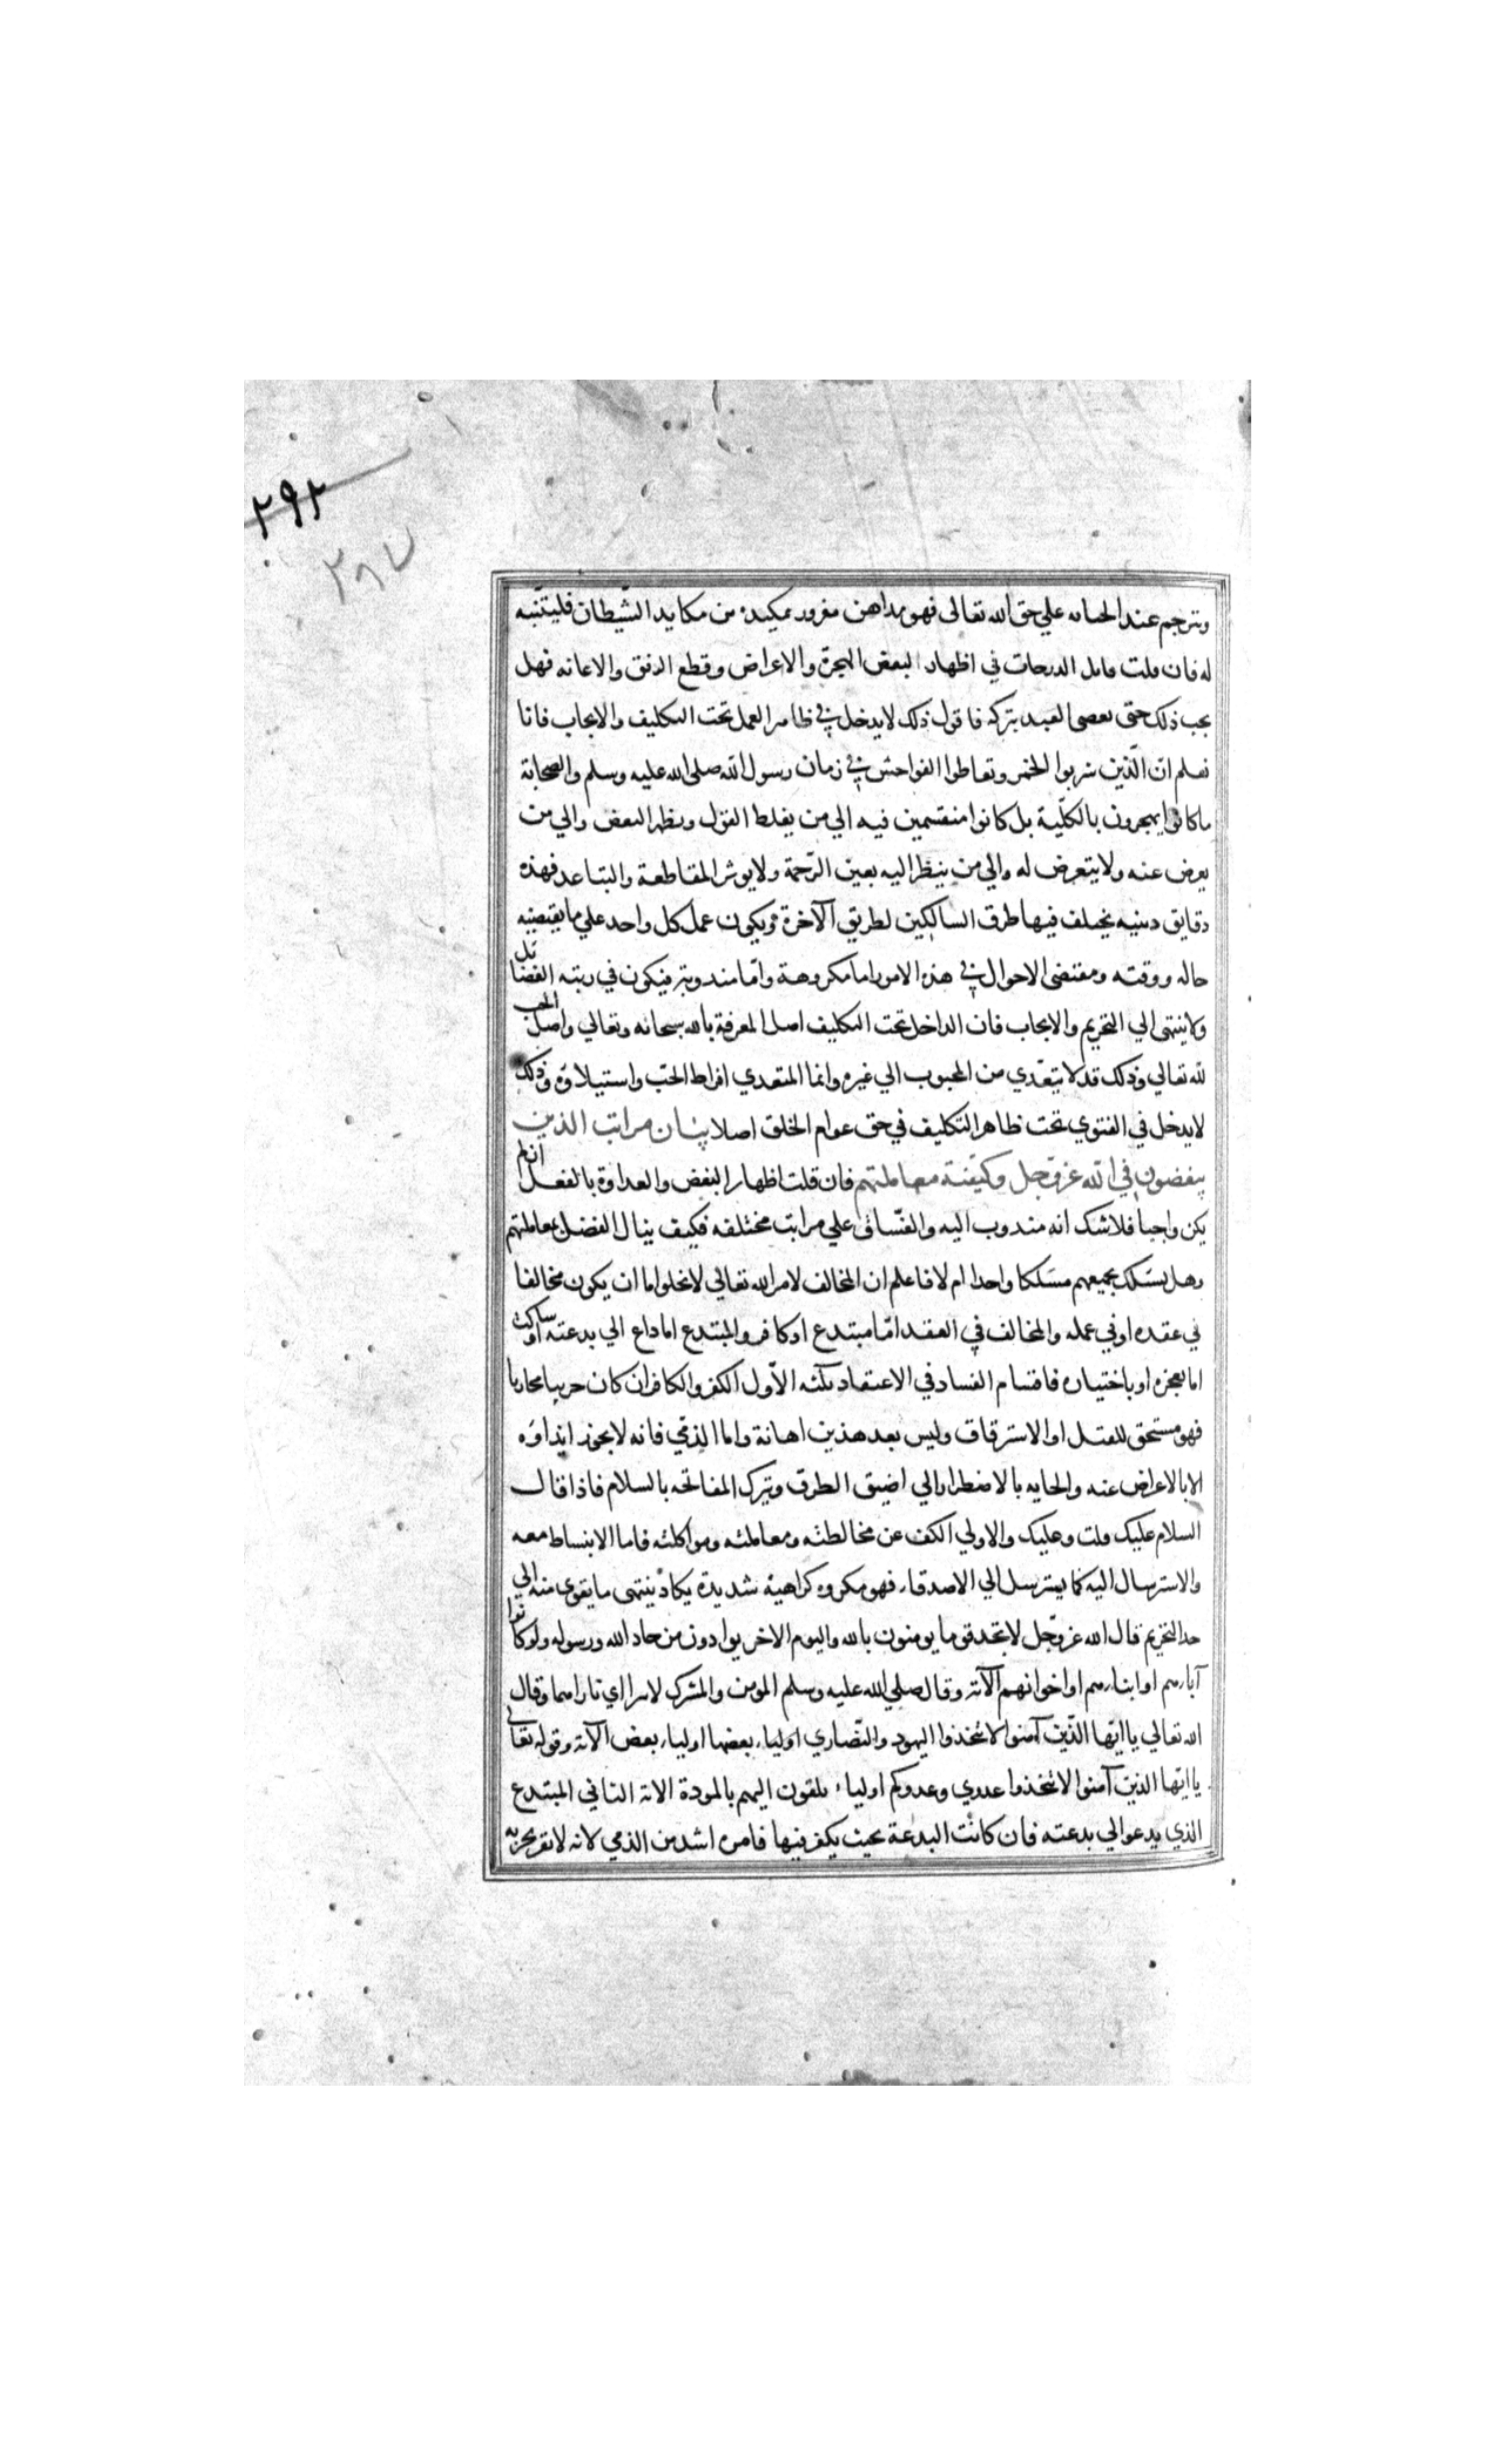 ٢٩٢
٢٨٧
وترحم عند الجنايه علي حق الله تعالى فهو مداهن مغرور بمكيدة من مكايد الشّيطان فليتنّبه
له فان قلت فاقل الدرجات في اظهار البغض الهجرة والاعراض وقطع الرفق والاعانه فهل
يجب ذلك حتى يعصى العبد بتركه فاقول ذلك لا يدخل في ظاهر العمل تحت التكليف والايجاب فانا
نعلم ان الّذين شربوا الخمر وتعاطوا الفواحش في زمان رسول الله صلى الله عليه وسلم والصحابة
ما كانوا يهجرون بالكلّية بل كانوا منقسمين فيه الي من يغلظ القول ويظهر البغض والي من
يعرض عنه ولا يتعرض له والي من ينظر اليه بعين الرّحمة ولا يوثر المقاطعة والتباعد فهذه
دقايق دينيه يختلف فيها طرق السالكين لطريق الآخرة ويكون عمل كل واحد علي ما يقتضيه
حاله ووقته ومقتضى الاحوال في هذه الامور اما مكروهة وامّا مندوبة فيكون في رتبه الفضائل
ولا ينتهي الي التحريم والايجاب فان الداخل تحت التكليف اصل المعرفة بالله سبحانه وتعالي واصل الحب
لله تعالي وذلك قد لا يتعّدي من المحبوب الي غيره وانما المتعدي افراط الحبّ واستيلاؤه وذلك
لا يدخل في الفتوي تحت ظاهر التكليف في حق عوام الخلق اصلا بيان مراتب الذين
يبغضون في الله عزّ وجل وكيفّية معاملتهم فان قلت اظهار البغض والعداوة بالفعل ان لم
يكن واجبا فلا شك انه مندوب اليه والفسّاق علي مراتب مختلفه فكيف ينال الفضل بمعاملتهم
وهل يسلك بجميعهم مسلكا واحدا ام لا فاعلم ان المخالف لامر الله تعالي لا يخلوا اما ان يكون مخالفا
في عقده او في عمله والمخالف في العقد امّا مبتدع او كافر والمبتدع اما داع الي بدعته او ساكت
اما بعجزه او باختياره فاقسام الفساد في الاعتقاد ثلثه الأول الكفر والكافر ان كان حربيا محاربا
فهو مستحق للقتل او الاسترقاق وليس بعد هذين اهانة واما الذمّي فانه لا يجوز ايذاؤه
الا بالاعراض عنه والجايه بالاضطرار الي اضيق الطرق وبترك المفاتحه بالسلام فاذا قال
السلام عليك قلت وعليك والاولي الكف عن مخالطته ومعاملته ومواكلته فاما الانبساط معه
والاسترسال اليه كما يسترسل الي الاصدقاء فهو مكروه كراهية شديدة يكاد ينتهى ما يقوى منه الي
حد التحريم قال الله عز وجّل لا تجد قوما يومنون بالله واليوم الاخر يوادون من حاد الله ورسوله ولو كانوا
آباءهم او ابناءهم او اخوانهم الآية وقال صلي الله عليه وسلم المومن والمشرك لا تراآي ناراهما وقال
الله تعالي يا ايّها الّذين آمنوا لا تتخذوا اليهود والنّصاري اولياء بعضها اولياء بعض الآية وقوله تعالي
يا ايّها الذين آمنوا لا تتخذوا عدوي وعدوكم اولياء تلقون اليهم بالمودة الاية الثاني المبتدع
الذي يدعوا الي بدعته فان كانت البدعة بحيث يكفر فيها فامره اشد من الذمي لانه لا يقر بجزيه